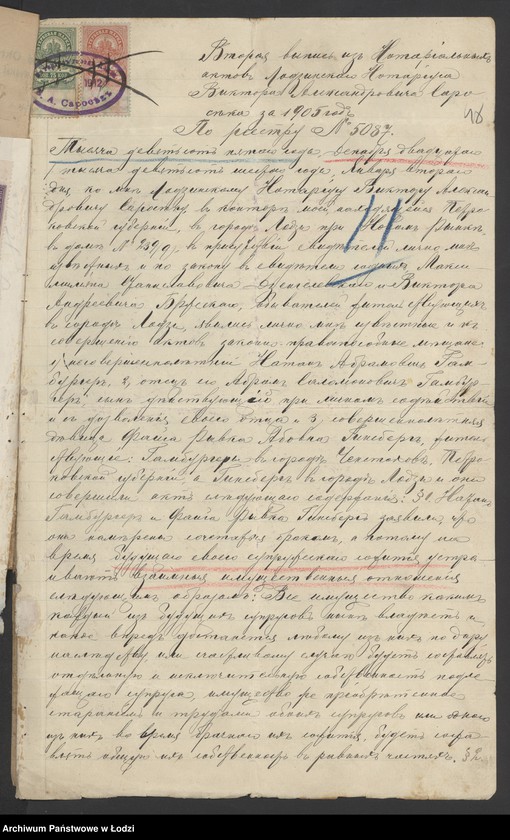 Вторая выпись изъ Нотаріальныхъ
актовъ Лодзинскаго Нотаріуса
Виктора Александровича Саро-
сѣка за 1905 годъ
По реестру № 5087.
Тысяча девятьсотъ пятаго года, Декабря двадцатаго
тысяча девятьсотъ шестаго года, Января втораго
дня ко мнѣ Лодзинскому Нотаріусу Виктору Алексан
дровичу Саросѣку, въ контору мою, находящуюся Петро
ковской губерніи, въ городѣ Лодзи при Новомъ Рынкѣ,
въ домѣ № въ присутствіи свидѣтелей лично мнѣ
извѣстныхъ и по закону въ свидѣтели годныхъ Макси
миліана Станиславовича и Виктора
Андреевича жительствующихъ
въ городѣ Лодзи, явились лично мнѣ извѣстные и къ
совершенію актовъ законно правоспособные мѣщане:
1, несовершеннолѣтній Натанъ Абрамовичъ Гам-
бургеръ, 2, отецъ его Абрамъ Соломоновичъ Гамбур-
геръ, сынъ дѣйствующій при личномъ содѣйствіи
и съ дозволенія своего отца и 3, совершеннолѣтняя
дѣвица Файга Ривка Абовна Гинсбергъ, житель-
ствующіе: Гамбургеры въ городѣ Ченстоховѣ, Петро
ковской губерніи, а Гинсбергъ въ городѣ Лодзи и они
совершили актъ слѣдующаго содержанія: § 1. Натанъ
Гамбургеръ и Файга Ривка Гинсбергъ заявили, что
они намѣрены сочетаться бракомъ, а потому на
время будущаго своего супружескаго сожитія устра
иваютъ взаимныя имущественныя отношенія
слѣдующимъ образомъ: Все имущество какимъ
каждый изъ будущихъ супруговъ нынѣ владѣетъ и
какое впредь достанется любому изъ нихъ по дару
наслѣдству или счастливому случаю будетъ составлять
отдѣльную и исключительную собственность подле-
жащаго супруга, имущество же пріобрѣтенное
стараніемъ и трудами обоихъ супруговъ или одного
изъ нихъ во время брачнаго ихъ сожитія, будетъ соста
влять общую ихъ собственность въ равныхъ частяхъ. § 2.
11
Archiwum Państwowe w Łodzi